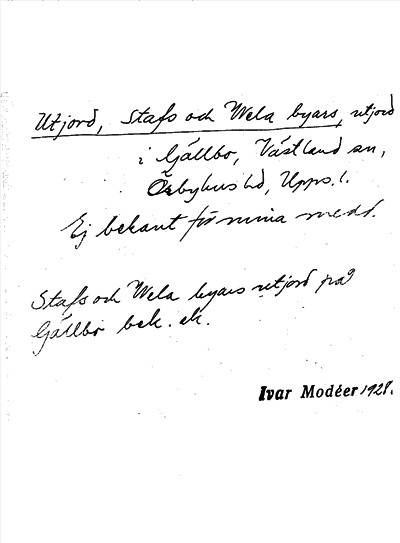 Utjord, Stafs och Wela byars, utjord
i Gällbo, Västland sn,
Örbyhus hd, Upps. l.
Ej bekant för mina medd.
Stafs och Wela byars utjord på
Gällbo bek. ek.
Ivar Modéer 1928.